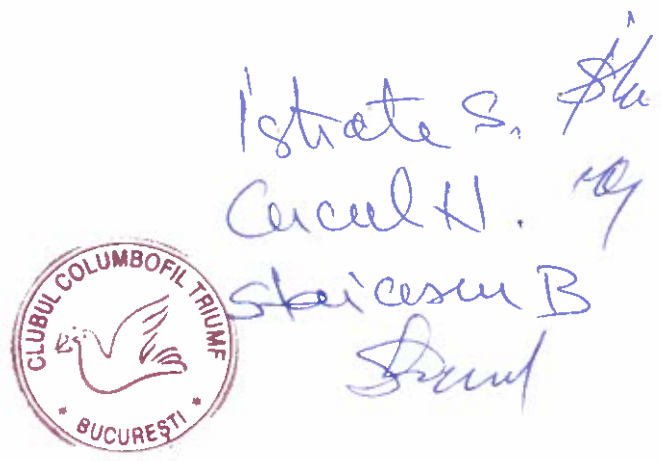 Istrate S.
Cucul H.
Staicescu B
CLUBUL COLUMBOFIL TRIUMF
* BUCUREȘTI *